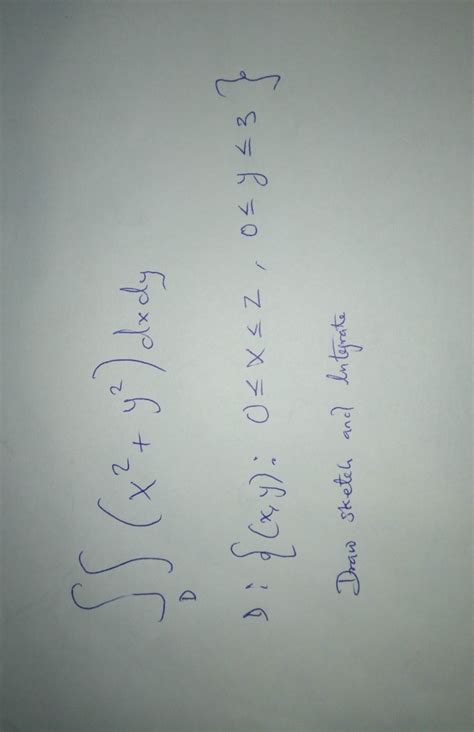 ∬_D (x² + y²) dx dy
D: {(x,y): 0 ≤ x ≤ 2, 0 ≤ y ≤ 3}
Draw sketch and Integrate